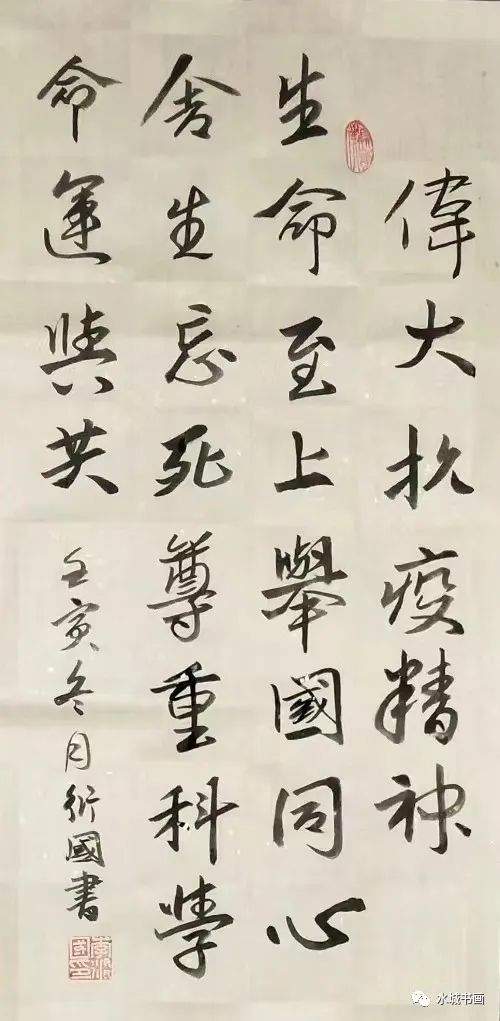 偉大抗疫精神
生命至上舉國同心
舍生忘死尊重科學
命運與共
壬寅冬月衍國書
水城书画